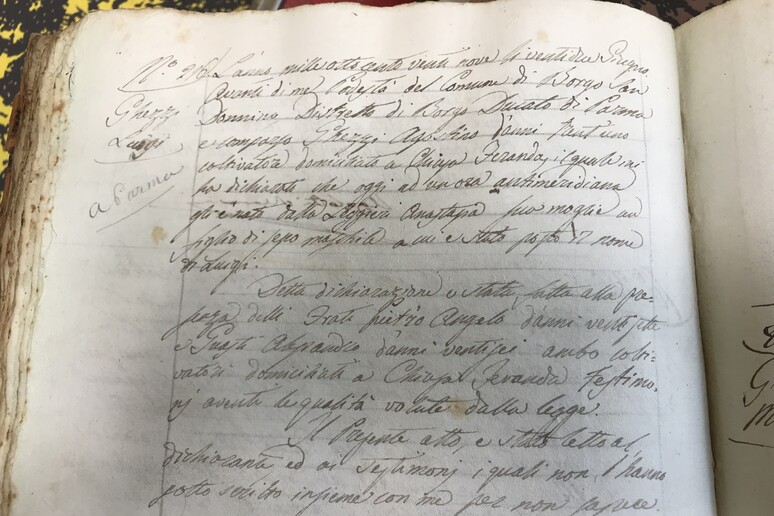 N.º 216 L'anno mille ottocento venti nove li ventidue Giugno
Ghezzi
Luigi
a Parma
avanti di me Podestà del Comune di Borgo San
Donnino Distretto di Borgo Ducato di Parma
e comparso Ghezzi Agostino d'anni trent'uno
coltivatore domiciliato a Chiusa Feranda, il quale mi
ha dichiarato che oggi ad un ora antimeridiana
gli è nato dalla Anastasia sua moglie un
figlio di sesso maschile a cui è stato posto il nome
di Luigi.
Detta dichiarazione è stata fatta alla pre-
senza delli Frati Pietro Angelo d'anni ventisette
e d'anni ventisei ambo colti-
vatori domiciliati a Chiusa Feranda testimo-
nj aventi le qualità volute dalla legge.
Il Presente atto, è stato letto al
dichiarante ed ai Testimonj i quali non l'hanno
sotto scritto insieme con me per non sapere